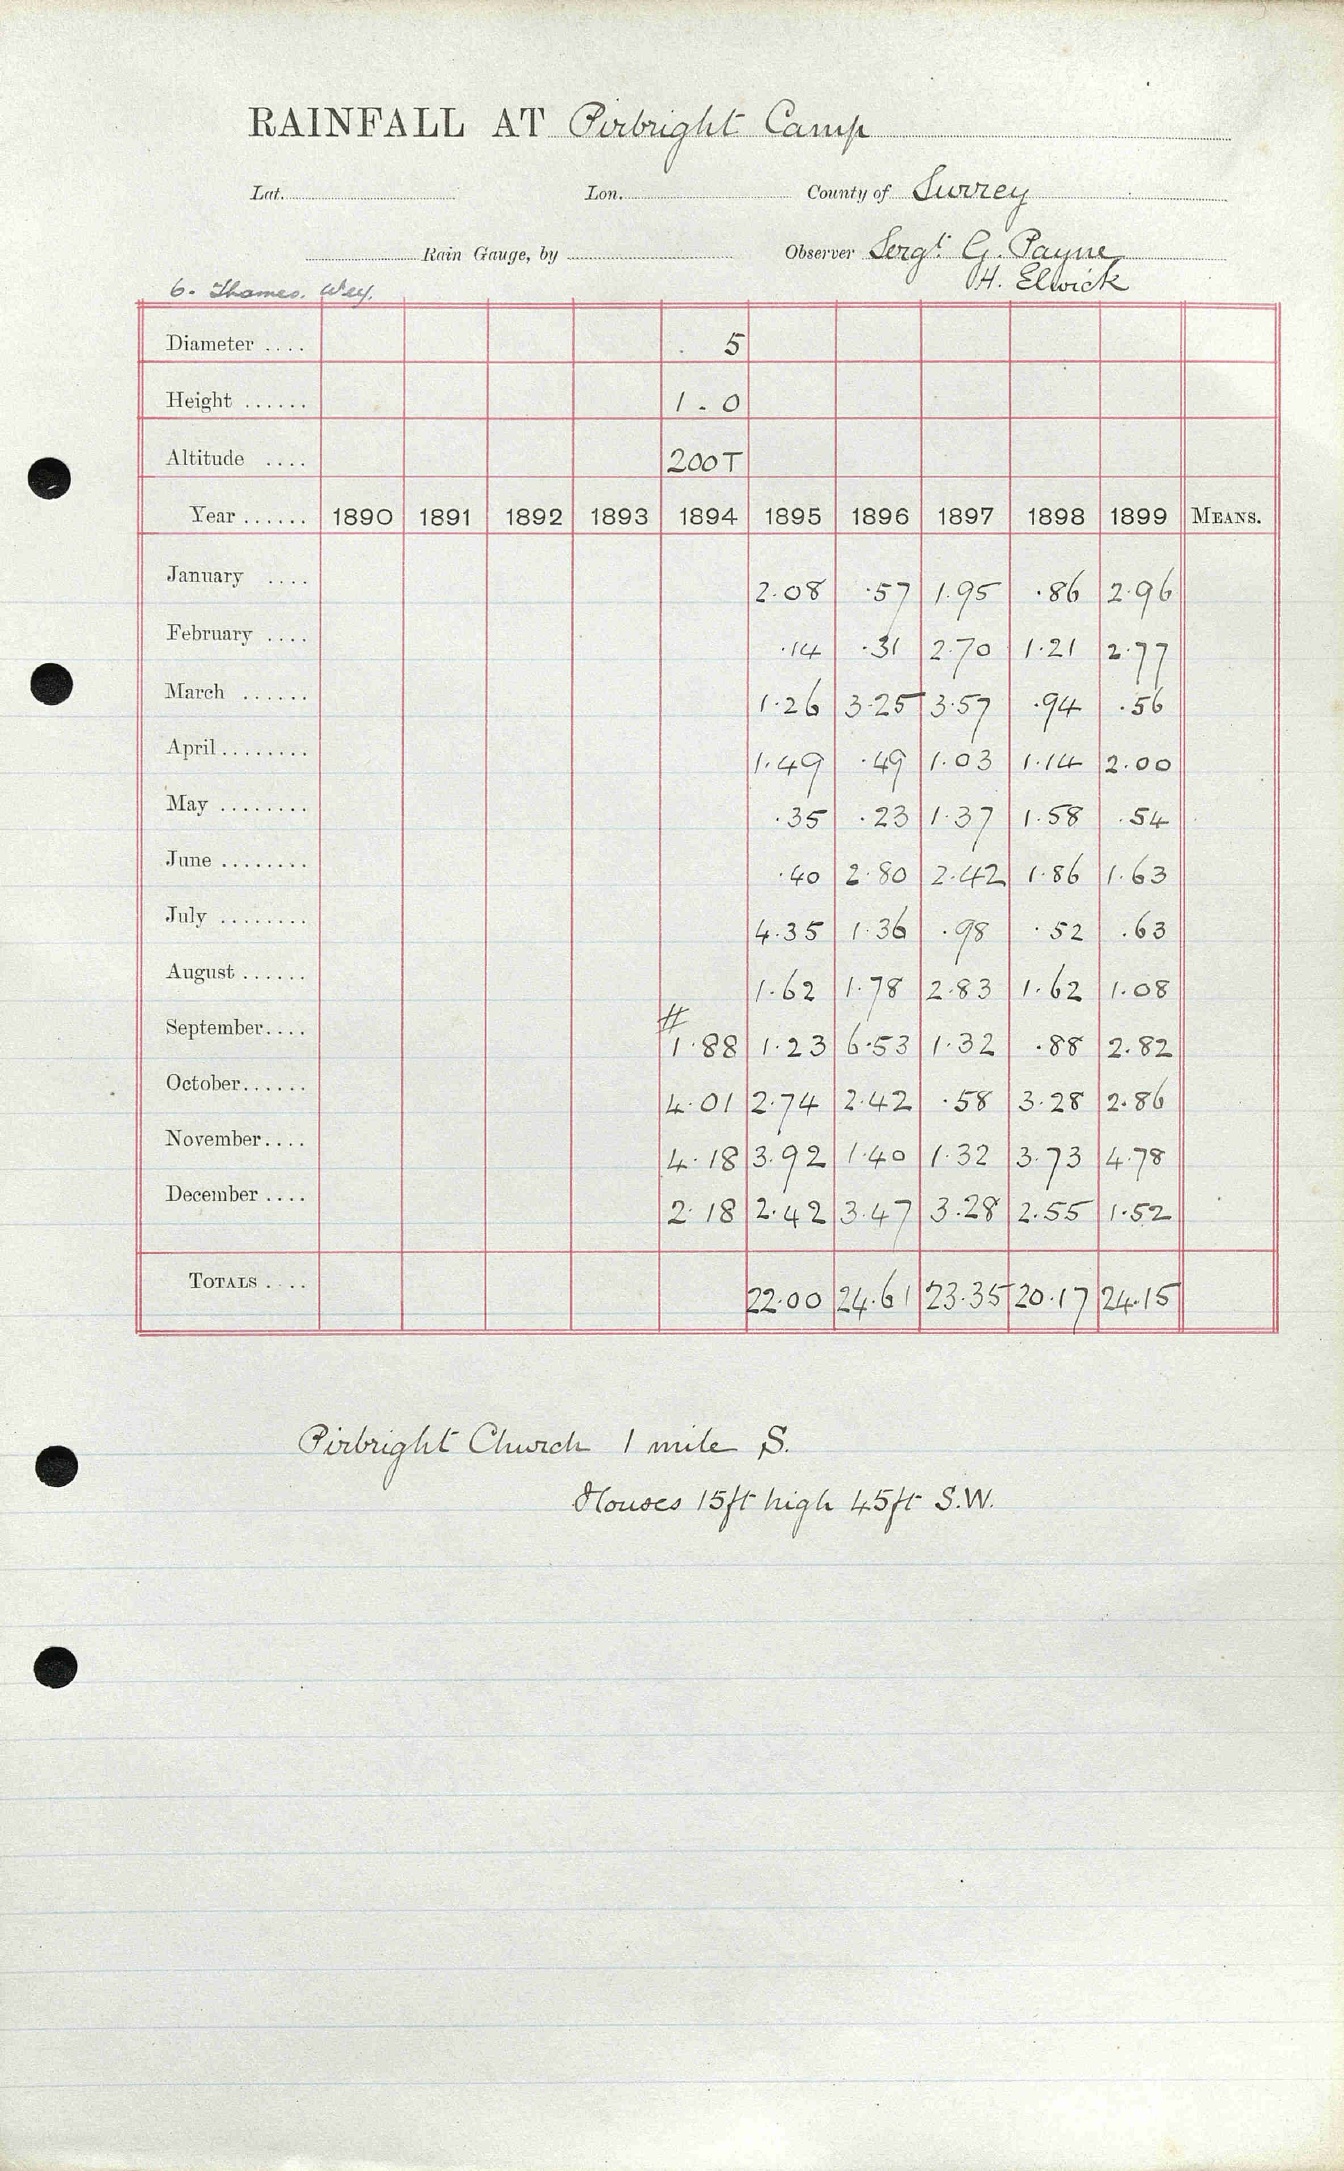 RAINFALL AT Pirbright Camp
Lat. Lon. County of Surrey
Rain Gauge, by Observer Sergt. G. Payne
H. Elwick
6. Thames. Wey.
Diameter .... 5
Height ...... 1.0
Altitude .... 200T
Year ...... 1890 1891 1892 1893 1894 1895 1896 1897 1898 1899 MEANS.
January .... 2.08 .57 1.95 .86 2.96
February .... .14 .31 2.70 1.21 2.77
March ...... 1.26 3.25 3.57 .94 .56
April ........ 1.49 .49 1.03 1.14 2.00
May ........ .35 .23 1.37 1.58 .54
June ........ .40 2.80 2.42 1.86 1.63
July ........ 4.35 1.36 .98 .52 .63
August ...... 1.62 1.78 2.83 1.62 1.08
#
September.... 1.88 1.23 6.53 1.32 .88 2.82
October...... 4.01 2.74 2.42 .58 3.28 2.86
November.... 4.18 3.92 1.40 1.32 3.73 4.78
December .... 2.18 2.42 3.47 3.28 2.55 1.52
TOTALS .... 22.00 24.61 23.35 20.17 24.15
Pirbright Church 1 mile S.
Houses 15ft high 45ft S.W.